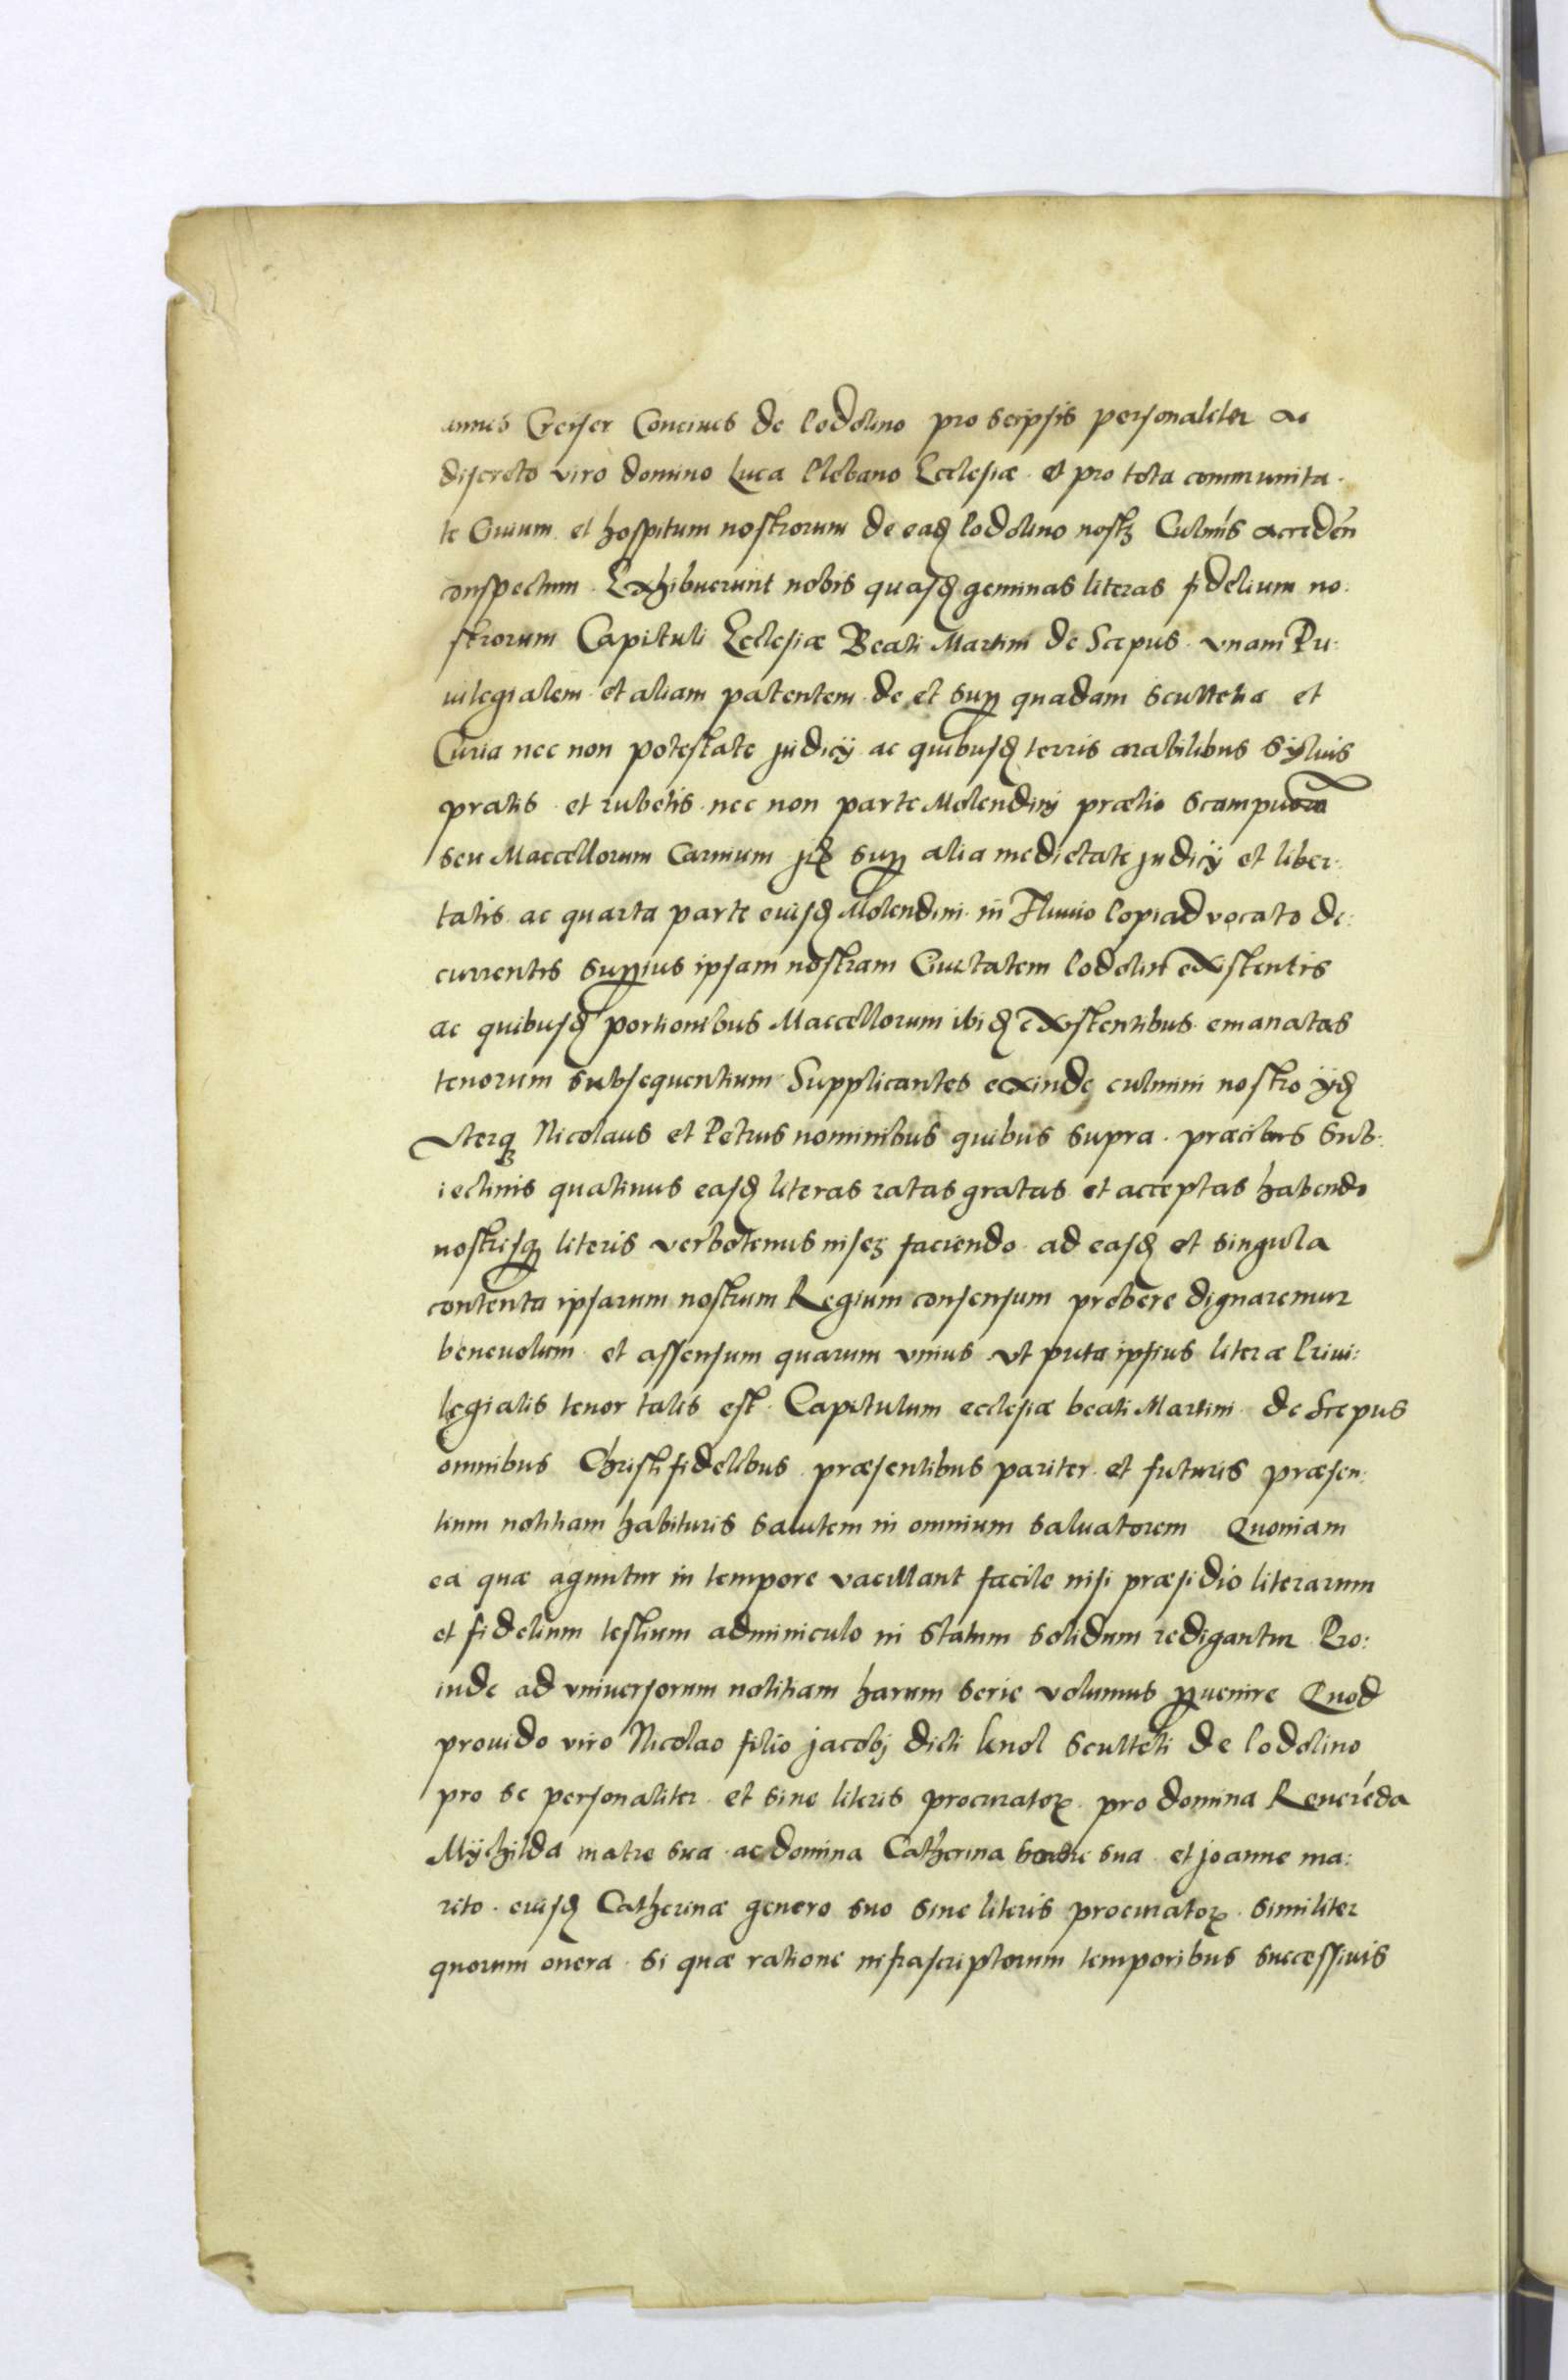 annes Creiser Conciues de lodolino pro seipsis personaliter ac
discreto viro domino Luca Plebano Ecclesiæ et pro tota communita
te Ciuium et hospitum nostrorum de eadꝫ lodolino nostꝫ Culmīs acceden̄
conspectum Exhibuerunt nobis quasdꝫ geminas literas fidelium no:
strorum Capituli Ecclesiæ Beati Martini de Scepus vnam Pri:
uilegialem et aliam patentem de et supꝑ quadam scultetia et
Curia nec non potestate judicÿ ac quibusdꝫ terris arabilibus Syluis
pratis et rubetis nec non parte Molendinj prætio scampnorū
seu Maccellorum Carnium supꝑ alia medietate judicÿ et liber:
tatis ac quarta parte eiusdꝫ Molendini in Fluuio Popiad vocato de:
currentis suꝑius ipsam nostram Ciuitatem lodolin existentis
ac quibusdꝫ portionibus Maccellorum ibidꝫ existentibus emanatas
tenorum subsequentium Supplicantes exinde culmini nostro ÿdꝫ
Vterqꝫ Nicolaus et Petrus nominibus quibus supra præcibus sub:
iectinis quatinus easdꝫ literas ratas gratas et acceptas habendo
nostrisqꝫ literis verbotenus inserj faciendo ad easdꝫ et singula
contenta ipsarum nostrum Regium consensum prebere dignaremur
beneuolum et assensum quarum vnius vt puta ipsius literæ Priui:
legialis tenor talis est Capitulum ecclesiæ beati Martini de Scepus
omnibus Christifidelibus præsentibus pariter et futuris præsen:
tium notitiam habituris salutem in omnium saluatorem Quoniam
ea quæ aguntur in tempore vacillant facile nisi præsidio literarum
et fidelium testium adminiculo in statum solidum redigantur Pro:
inde ad vniuersorum notitiam harum serie volumus ꝑuenire Quod
prouido viro Nicolao filio jacobj dicti knol Sculteti de lodolino
pro se personaliter et sine literis procuratorꝭ pro domina Reueréda
Mÿchilda matre sua ac domina Catherina sua et joanne ma:
rito eiusdꝫ Catherinæ genero suo sine literis procuratorꝭ similiter
quorum onera si quæ ratione infrascriptorum temporibus successiuis